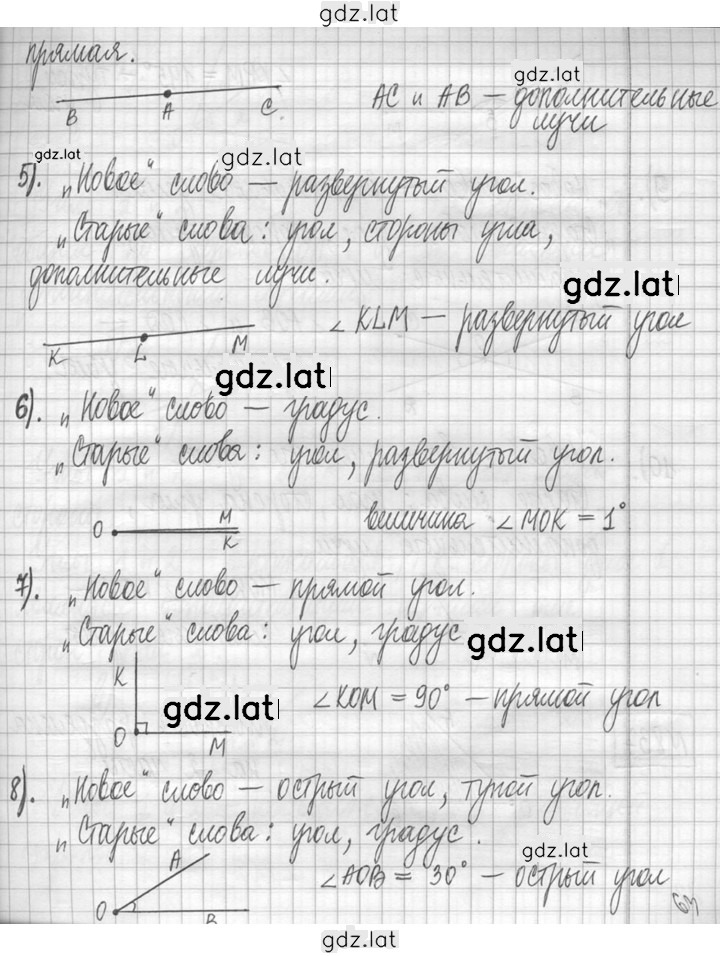 gdz.lat
прямая.
gdz.lat
B A C.
AC и AB — дополнительные
лучи
gdz.lat
gdz.lat
5). „Новое“ слово — развернутый угол.
„Старые“ слова: угол, стороны угла,
дополнительные лучи.
gdz.lat
K L M
∠KLM — развернутый угол
gdz.lat
6). „Новое“ слово — градус.
„Старые“ слова: угол, развернутый угол.
O M K
величина ∠MOK = 1°
7). „Новое“ слово — прямой угол.
„Старые“ слова: угол, градус
gdz.lat
K O M
gdz.lat
∠KOM = 90° — прямой угол
8). „Новое“ слово — острый угол, тупой угол.
„Старые“ слова: угол, градус.
gdz.lat
A O B
∠AOB = 30° — острый угол
63
gdz.lat